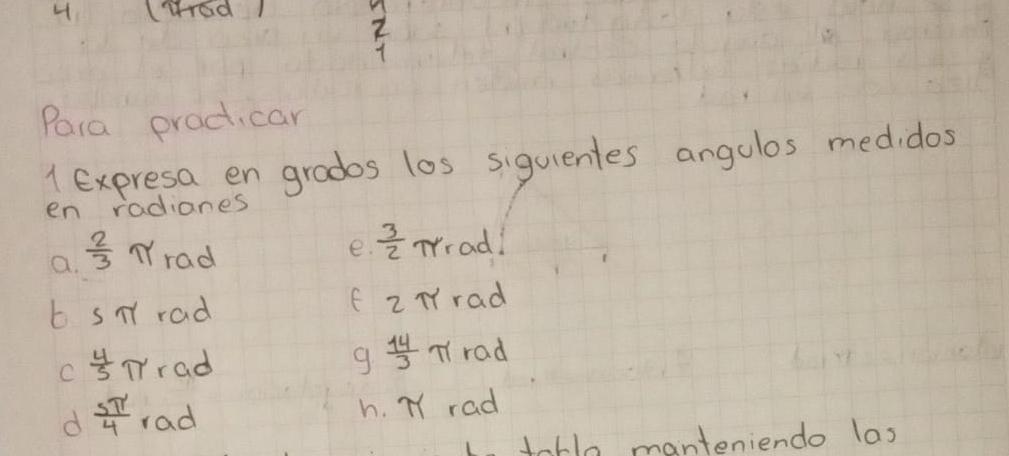 4.
2
1
Para practicar
1 Expresa en grados los siguientes angulos medidos
en radianes
a. 2/3 π rad
e. 3/2 π rad
b 5 π rad
f 2 π rad
c 4/3 π rad
g 14/3 π rad
d 5π/4 rad
h. π rad
tabla manteniendo las